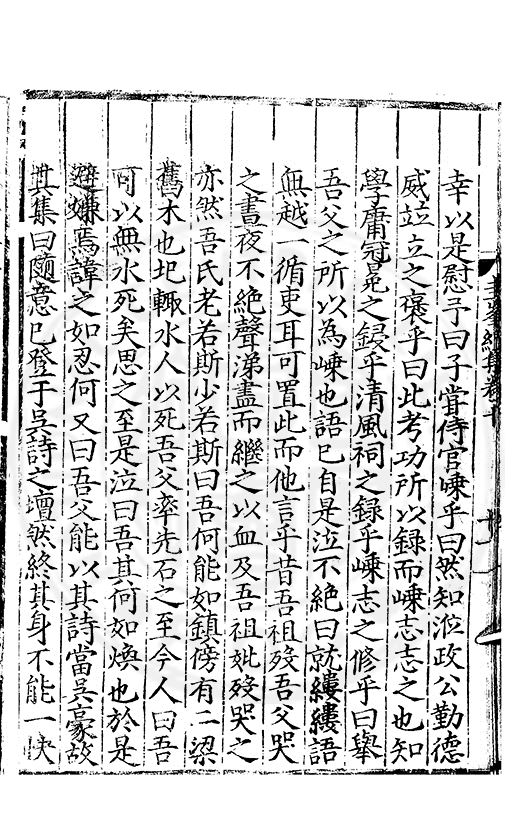 幸以是慰予曰子嘗侍官嵊乎曰然知涖政公勤德
威竝立之褒乎曰此考功所以録而嵊志志之也知
學庸冠冕之鋟乎清風祠之録乎嵊志之修乎曰舉
吾父之所以為嵊也語巳自是泣不絶曰就縷縷語
無越一循吏耳可置此而他言乎昔吾祖殁吾父哭
之晝夜不絶聲涕盡而繼之以血及吾祖妣殁哭之
亦然吾氏老若斯少若斯曰吾何能如鎮傍有二梁
舊木也圯輙水人以死吾父率先石之至今人曰吾
可以無水死矣思之至是泣曰吾其何如煥也於是
避嫌焉諱之如忍何又曰吾父能以其詩當吳豪故
其集曰隨意巳登于吳詩之壇然終其身不能一快